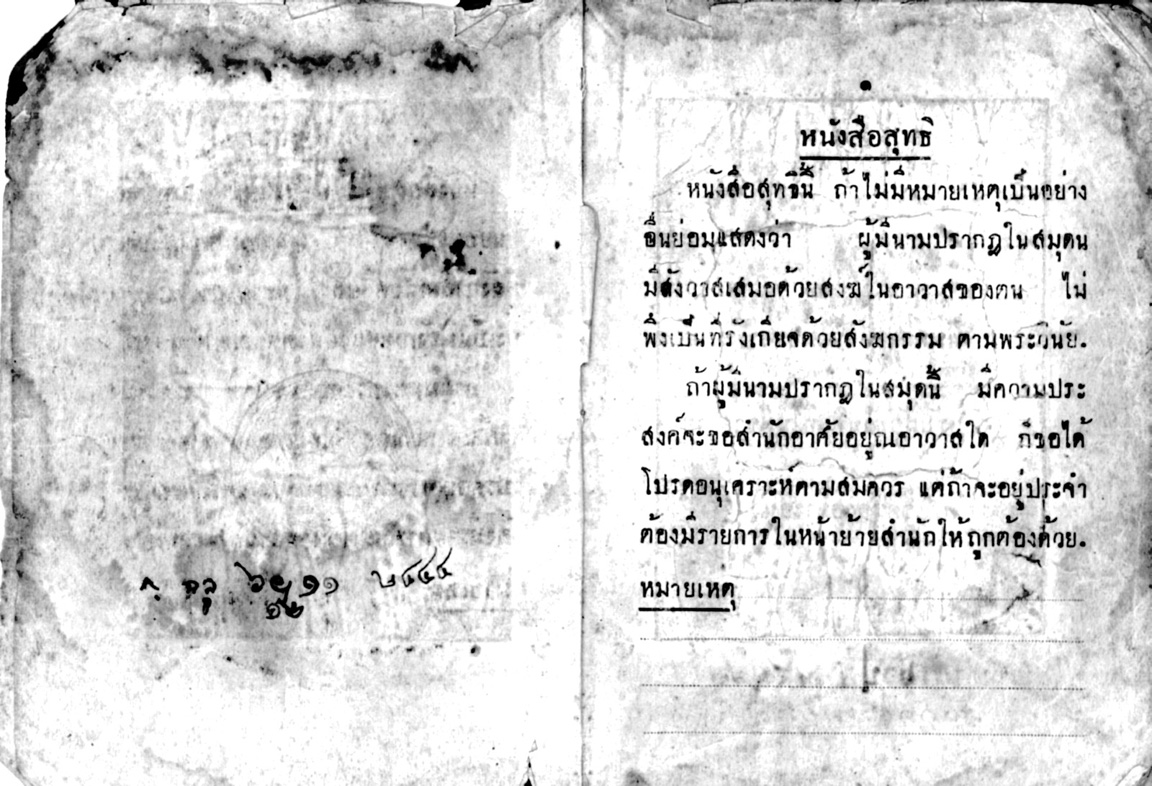 ๑
หนังสือสุทธิ
หนังสือสุทธินี้ ถ้าไม่มีหมายเหตุเป็นอย่าง
อื่นย่อมแสดงว่า ผู้มีนามปรากฏในสมุดน
มีสังวาสเสมอด้วยสงฆ์ในอาวาสของตน ไม่
พึงเป็นที่รังเกียจด้วยสังฆกรรม ตามพระวินัย.
ถ้าผู้มีนามปรากฏในสมุดนี้ มีความประ
สงค์จะขอสำนักอาศัยอยู่ณอาวาสใด ก็ขอได้
โปรดอนุเคราะห์ตามสมควร แต่ถ้าจะอยู่ประจำ
ต้องมีรายการในหน้าย้ายสำนักให้ถูกต้องด้วย.
หมายเหตุ